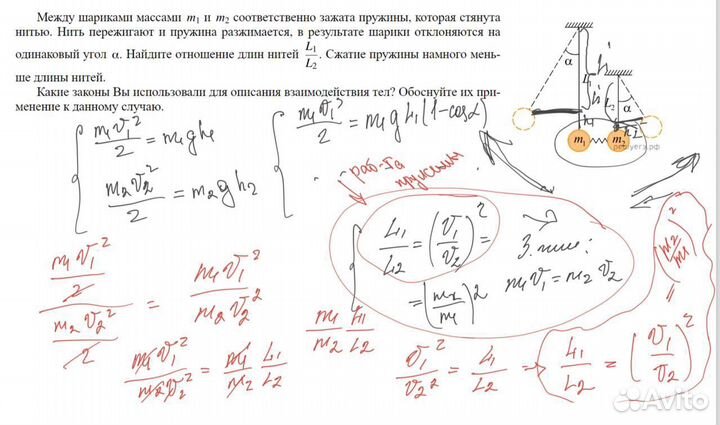 Между шариками массами m₁ и m₂ соответственно зажата пружины, которая стянута
нитью. Нить пережигают и пружина разжимается, в результате шарики отклоняются на
одинаковый угол α. Найдите отношение длин нитей L₁/L₂. Сжатие пружины намного мень-
ше длины нитей.
Какие законы Вы использовали для описания взаимодействия тел? Обоснуйте их при-
менение к данному случаю.
α
L₁
L₂
α
m₁
m₂
m₁v₁²/2 = m₁gh₁
m₂v₂²/2 = m₂gh₂
m₁v₁²/2 = m₁gL₁(1-cosα)
раб-та
пружины
L₁/L₂ = (v₁/v₂)² =
= (m₂/m₁)²
З.
m₁v₁ = m₂v₂
(m₂/m₁)²
=
(m₁v₁²/2)/(m₂v₂²/2) = m₁v₁²/m₂v₂²
m₁/m₂ L₁/L₂
m₁v₁²/m₂v₂² = m₁/m₂ L₁/L₂
v₁²/v₂² = L₁/L₂ => L₁/L₂ = (v₁/v₂)²
Avito